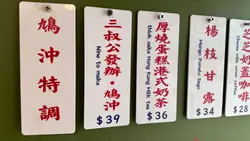 鳩沖特調
三叔公發辦·鳩沖
Nine to make
$39
厚燒蛋糕港式奶茶
thick, cake Hong Kong Milk tea
$36
楊枝甘露
Mango Pomelo Sago
$34
芝芝奶蓋咖啡
$28